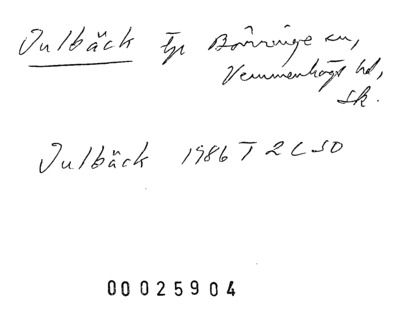 Julbäck tp Börringe sn,
Vemmenhögs hd,
Sk.
Julbäck 1986 T 2 C SO
00025904